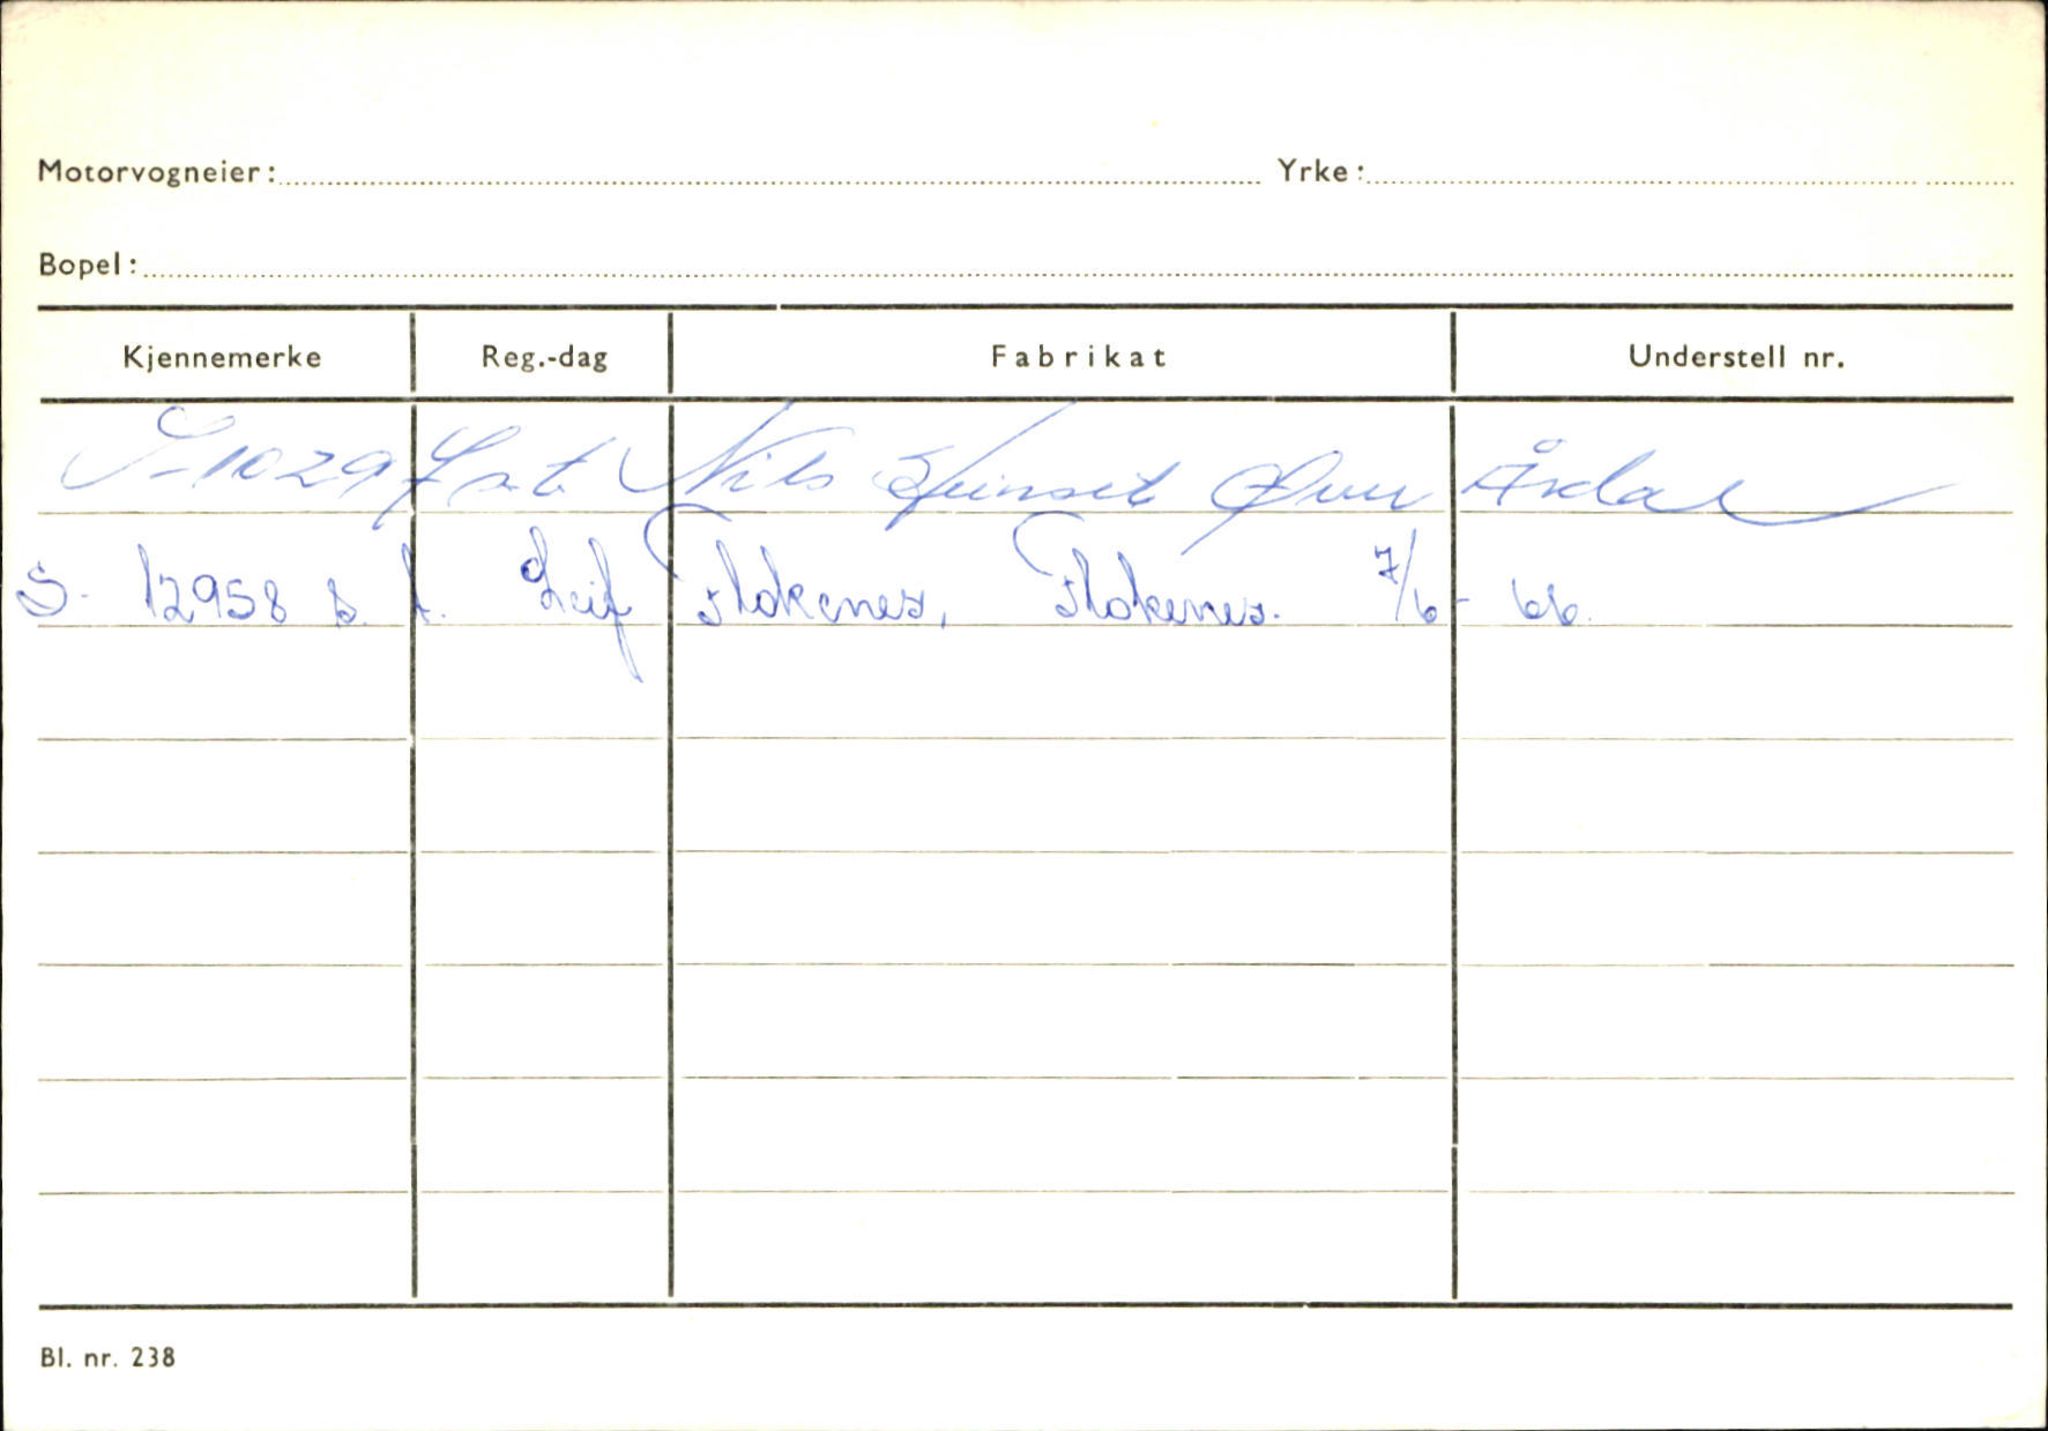 Motorvogneier: Yrke:
Bopel:
Kjennemerke Reg.-dag Fabrikat Understell nr.
S-10297 s.t. Nils Øvre Årdal
S- 12958 s.t. Leif Flokenes, Flokenes. 7/6-66.
Bl. nr. 238